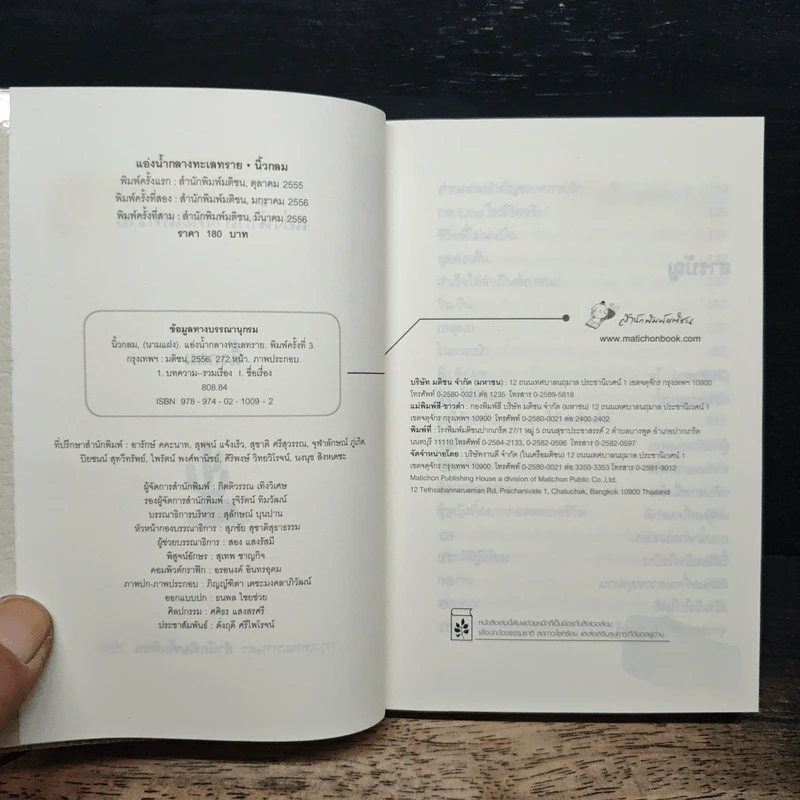 แอ่งน้ำกลางทะเลทราย • นิ้วกลม
พิมพ์ครั้งแรก : สำนักพิมพ์มติชน, ตุลาคม 2555
พิมพ์ครั้งที่สอง : สำนักพิมพ์มติชน, มกราคม 2556
พิมพ์ครั้งที่สาม : สำนักพิมพ์มติชน, มีนาคม 2556
ราคา 180 บาท
ข้อมูลทางบรรณานุกรม
นิ้วกลม, (นามแฝง). แอ่งน้ำกลางทะเลทราย. พิมพ์ครั้งที่ 3.
กรุงเทพฯ : มติชน, 2556, 272 หน้า. ภาพประกอบ.
1. บทความ-รวมเรื่อง I. ชื่อเรื่อง
808.84
ISBN 978 - 974 - 02 - 1009 - 2
ที่ปรึกษาสำนักพิมพ์ : อารักษ์ คคะนาท, สุพจน์ แจ้งเร็ว, สุชาติ ศรีสุวรรณ, จุฬาลักษณ์ ภู่เกิด,
ปิยชนน์ สุทวีทรัพย์, ไพรัตน์ พงศ์พานิชย์, ศิริพงษ์ วิทยวิโรจน์, นงนุช สิงหเดชะ
ผู้จัดการสำนักพิมพ์ : กิตติวรรณ เทิงวิเศษ
รองผู้จัดการสำนักพิมพ์ : รุจิรัตน์ ทิมวัฒน์
บรรณาธิการบริหาร : สุลักษณ์ บุนปาน
หัวหน้ากองบรรณาธิการ : สุภชัย สุชาติสุธาธรรม
ผู้ช่วยบรรณาธิการ : สอง แสงรัสมี
พิสูจน์อักษร : สุเทพ ชาญกิจ
คอมพิวต์กราฟิก : อรอนงค์ อินทรอุดม
ภาพปก-ภาพประกอบ : ภิญญ์ฑิตา เตชะมงคลาภิวัฒน์
ออกแบบปก : ธนพล ไชยช่วย
ศิลปกรรม : ศศิธร แสงสรศรี
ประชาสัมพันธ์ : ดั่งฤดี ศรีไพโรจน์
สำนักพิมพ์มติชน
www.matichonbook.com
บริษัท มติชน จำกัด (มหาชน) : 12 ถนนเทศบาลนฤมาล ประชานิเวศน์ 1 เขตจตุจักร กรุงเทพฯ 10900
โทรศัพท์ 0-2580-0021 ต่อ 1235 โทรสาร 0-2589-5818
แม่พิมพ์สี-ขาวดำ : กองพิมพ์สี บริษัท มติชน จำกัด (มหาชน) 12 ถนนเทศบาลนฤมาล ประชานิเวศน์ 1
เขตจตุจักร กรุงเทพฯ 10900 โทรศัพท์ 0-2580-0021 ต่อ 2400-2402
พิมพ์ที่ : โรงพิมพ์มติชนปากเกร็ด 27/1 หมู่ 5 ถนนสุขาประชาสรรค์ 2 ตำบลบางพูด อำเภอปากเกร็ด
นนทบุรี 11110 โทรศัพท์ 0-2584-2133, 0-2582-0596 โทรสาร 0-2582-0597
จัดจำหน่ายโดย : บริษัทงานดี จำกัด (ในเครือมติชน) 12 ถนนเทศบาลนฤมาล ประชานิเวศน์ 1
เขตจตุจักร กรุงเทพฯ 10900 โทรศัพท์ 0-2580-0021 ต่อ 3350-3353 โทรสาร 0-2591-9012
Matichon Publishing House a division of Matichon Public Co.,Ltd.
12 Tethsabannarueman Rd, Prachanivate 1, Chatuchak, Bangkok 10900 Thailand
หนังสือเล่มนี้พิมพ์ด้วยหมึกที่เป็นมิตรกับสิ่งแวดล้อม
เพื่อปกป้องธรรมชาติ ลดภาวะโลกร้อน และส่งเสริมสุขภาวะที่ดีของผู้อ่าน